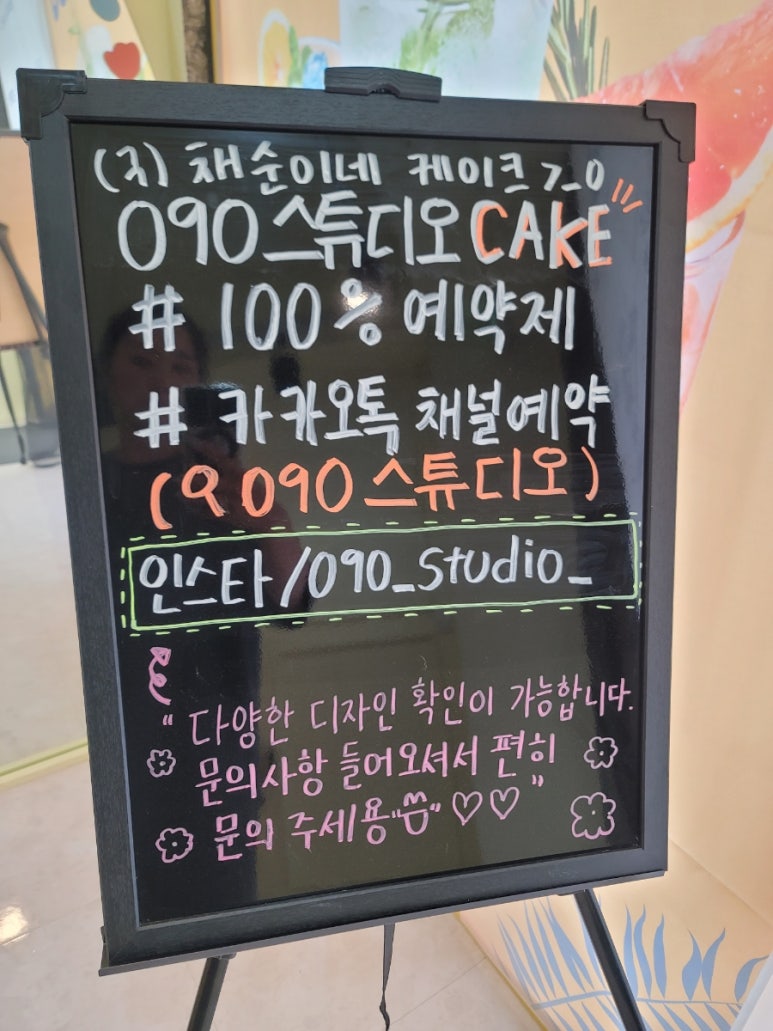 (지) 채순이네 케이크 7_0
090스튜디오CAKE
# 100% 예약제
# 카카오톡 채널예약
(Q 090스튜디오)
인스타/090_studio_
" 다양한 디자인 확인이 가능합니다.
문의사항 들어오셔서 편히
문의 주세용 ♡♡ "